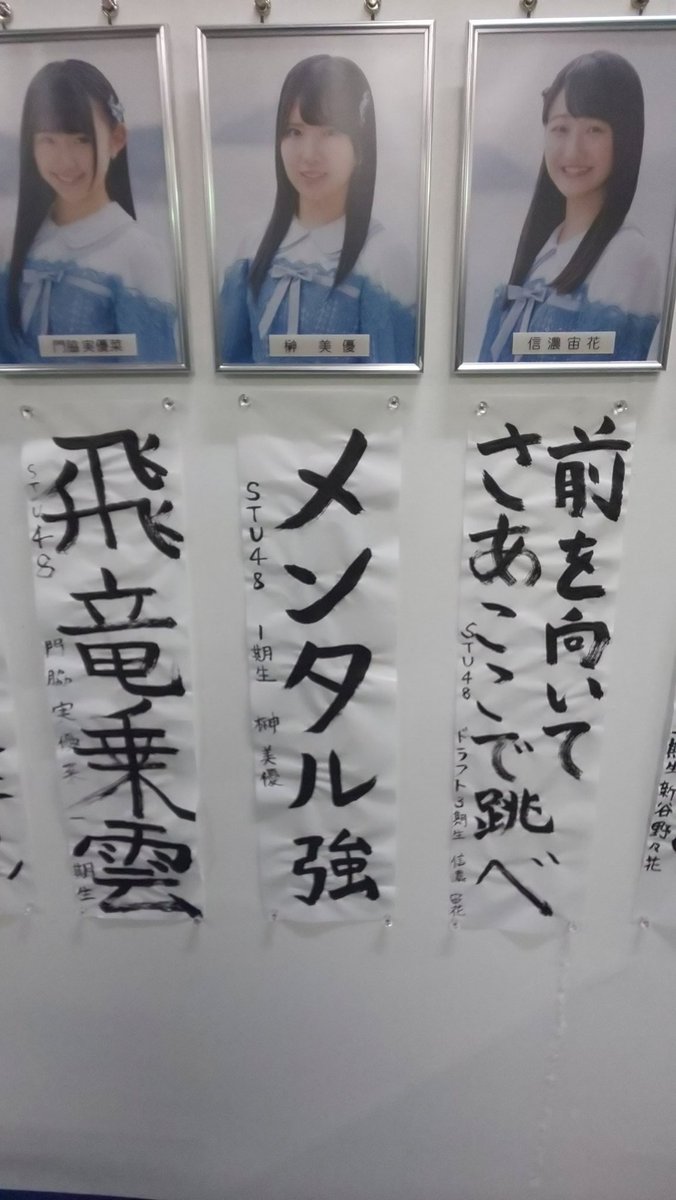 門脇実優菜
榊 美優
信濃宙花
飛竜乗雲
STU48
門脇 実優菜 一期生
メンタル強
STU48 1期生 榊 美優
前を向いて
さあここで跳べ
STU48 ドラフト3期生 信濃 宙花
期生 新谷野々花